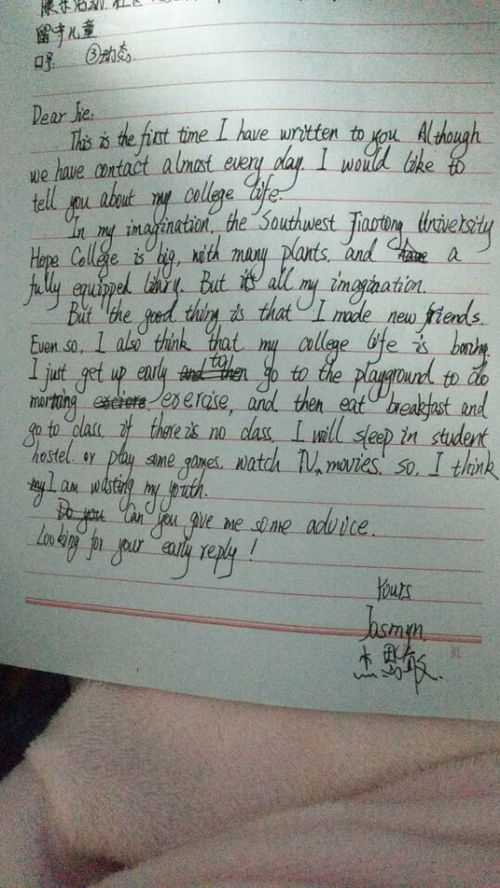 留守儿童
口号 ③动态
Dear Jie:
This is the first time I have written to you. Although
we have contact almost every day. I would like to
tell you about my college life.
In my imagination, the Southwest Jiaotong University
Hope College is big, with many plants, and a
fully equipped libiry. But it's all my imagination.
But the good thing is that I made new friends.
Even so, I also think that my college life is boring.
I just get up early to go to the playground to do
morning exercise, and then eat breakfast and
go to class. if there is no class, I will sleep in student
hostel. or play some games. watch TV, movies. so, I think
I am wasting my youth.
Can you give me some advice.
Looking for your early reply!
Yours
Jasmyn.
页